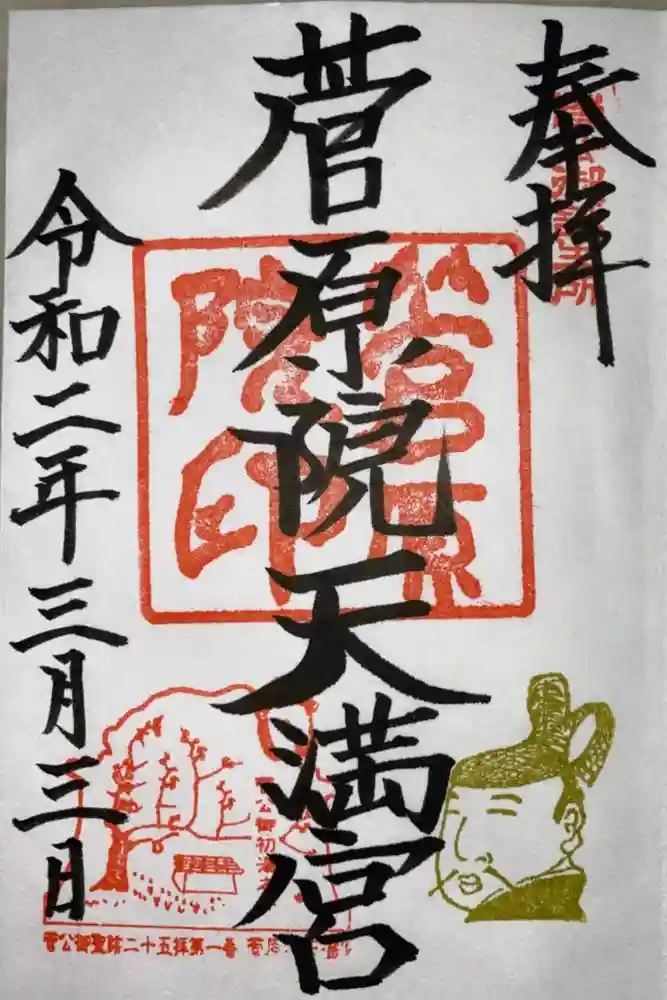 奉拝
菅原院天満宮
令和二年三月三日
菅原院印
菅公御聖跡二十五拝第一番